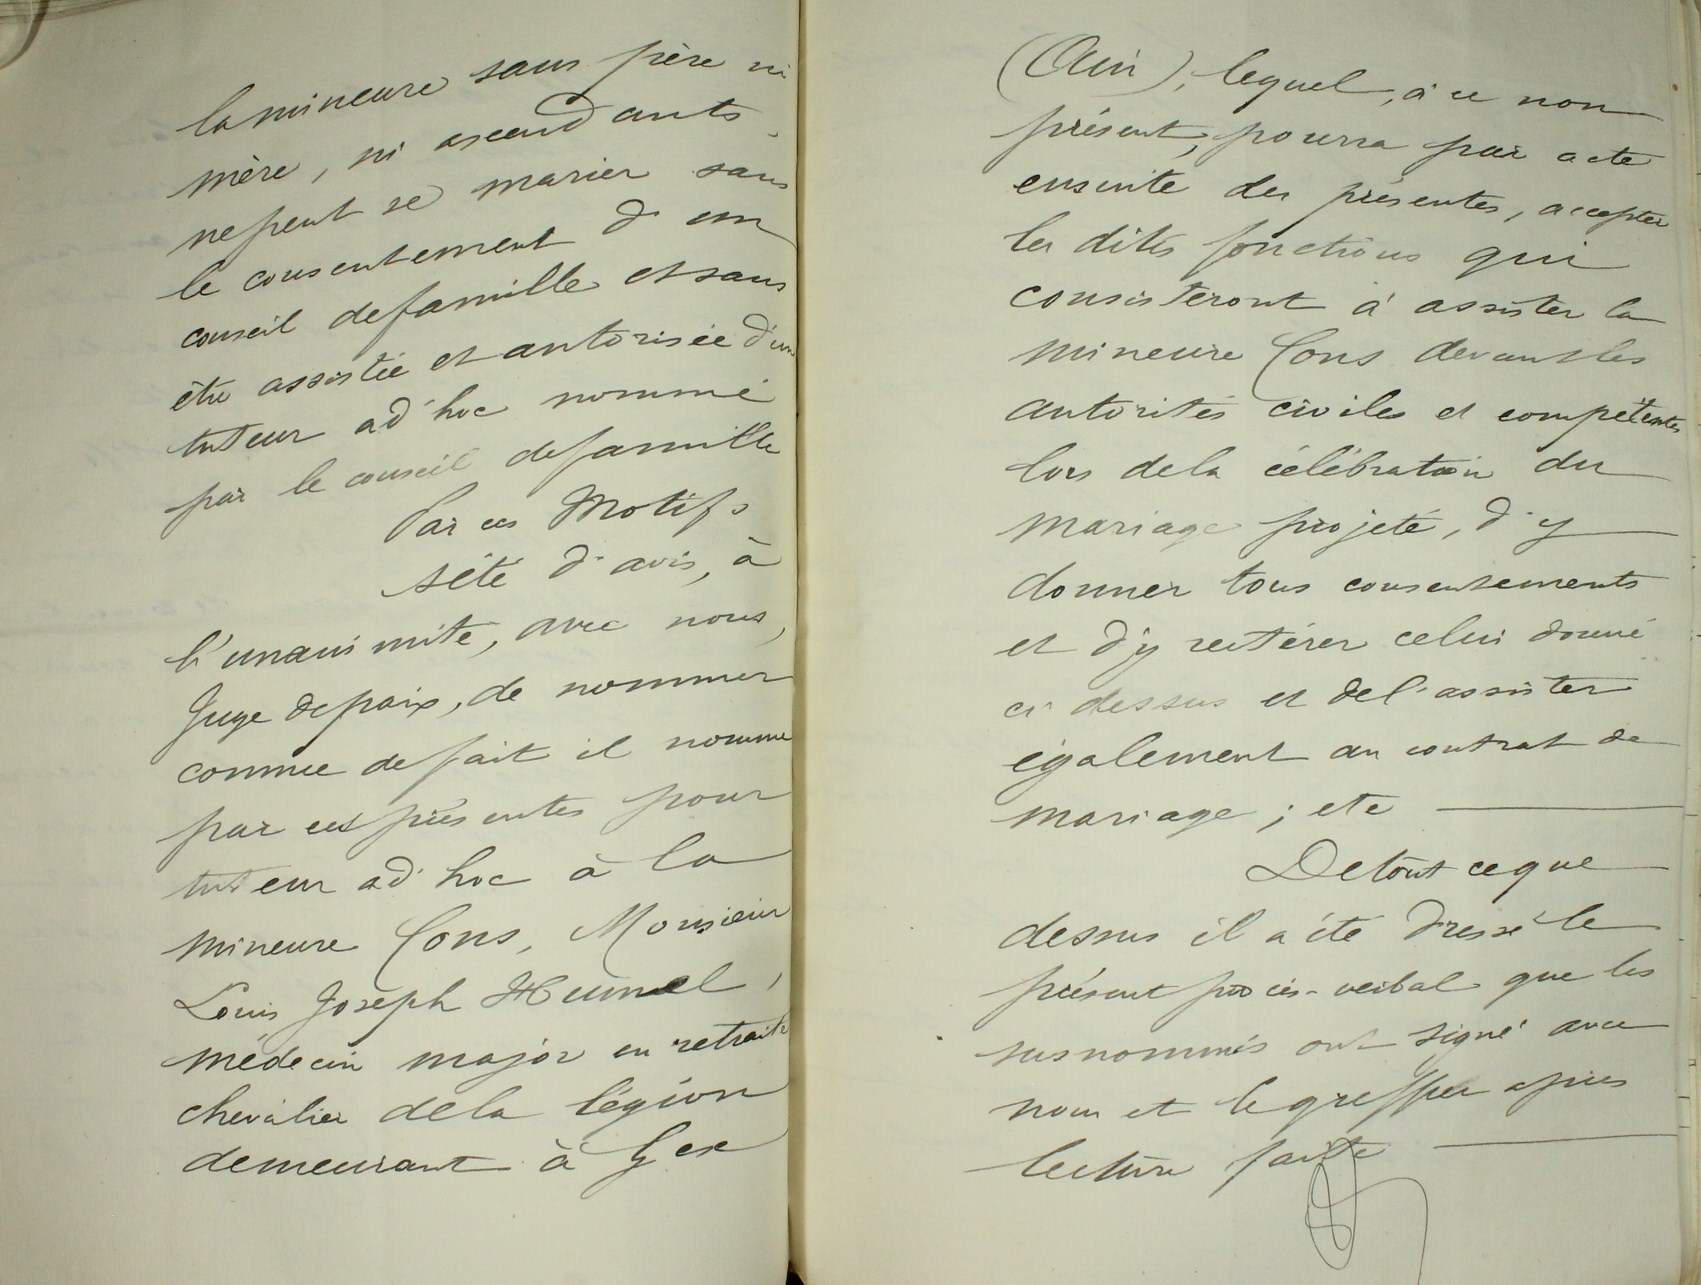 la mineure sans père ni
mère, ni ascendants,
ne peut se marier sans
le consentement d'un
conseil de famille et sans
être assistée et autorisée d'un
tuteur ad'hoc nommé
par le conseil de famille
Par ces Motifs
A été d'avis, à
l'unanimité, avec nous,
Juge de paix, de nommer
comme de fait il nomme
par ces présentes pour
tuteur ad'hoc à la
mineure Cons, Monsieur
Louis Joseph Hummel,
médecin major en retraite
chevalier de la légion
demeurant à Gex
(Ain), lequel, à ce non
présent, pourra par acte
ensuite des présentes, accepter
les dites fonctions qui
consisteront à assister la
mineure Cons devant les
autorités civiles et compétentes
lors de la célébration du
mariage projeté, d'y
donner tous consentements
et d'y réitérer celui donné
ci dessus et de l'assister
également au contrat de
mariage ; etc
De tout ce que
dessus il a été dressé le
présent procès-verbal que les
susnommés ont signé avec
nous et le greffier après
lecture faite